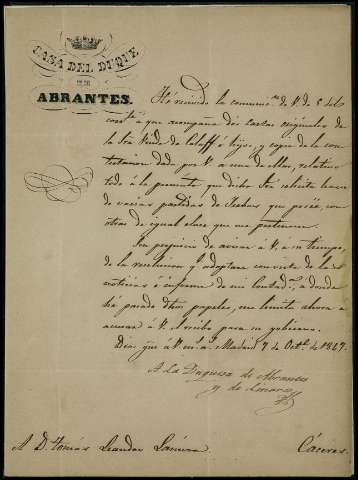 CASA DEL DUQUE
DE
ABRANTES.
Hé recibido la comunic.on de V. de 5 del
corr.te á que acompaña dos cartas originales de
la Sra Viuda de é hijos, y copia de la con
testacion dada por V. á una de ellas, relativo
todo á la permuta que dicha Sra solicita hacer
de varias partidas de Yerbas que posée, con
otras de igual clase que me pertenecen.
Sin perjuicio de avisar á V. á su tiempo,
de la resolucion q. adoptare con vista de las
noticias é informe de mi Contad.a, á donde
há pasado dhos papeles, me limito ahora á
acusar á V. el recibo para su gobierno.
Dios gûe á V. m.s a.s Madrid 7 de Oct.e de 1847.
A La Duquesa de Abrantes
y de Linares
A D. Tomás Leandro Cáceres.